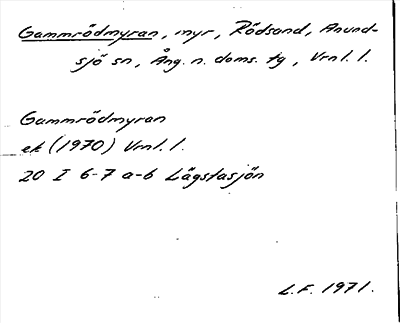 Gammrödmyran, myr, Rödsand, Anund-
sjö sn, Ång. n. doms. tg, Vrnl. l.
Gammrödmyran
ek (1970) Vrnl. l.
20 I 6-7 a-b Lägstasjön
L.F. 1971.